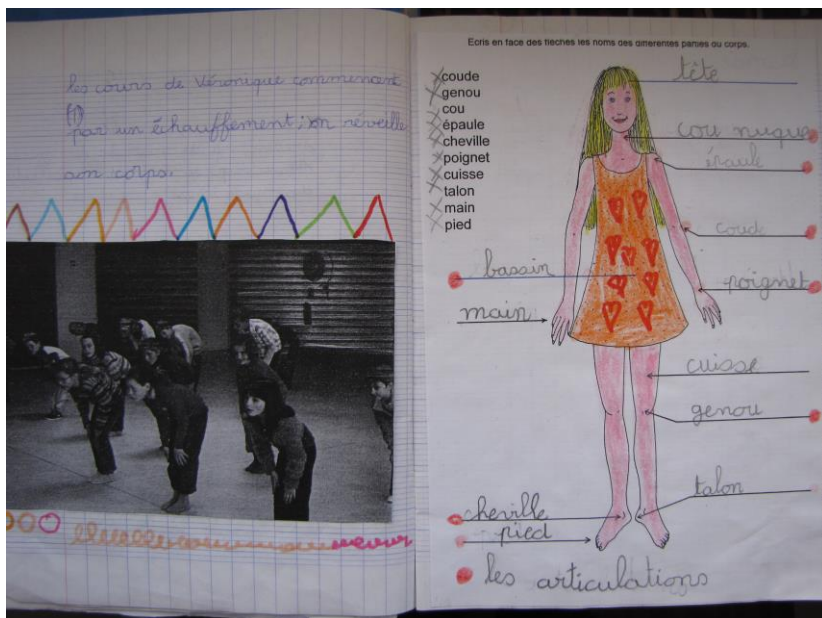 les cours de Véronique commencent
(1)
par un échauffement; on réveille
son corps.
Ecris en face des flèches les noms des différentes parties du corps.
coude
genou
cou
épaule
cheville
poignet
cuisse
talon
main
pied
tête
cou nuque
épaule
coude
bassin
poignet
main
cuisse
genou
talon
cheville
pied
les articulations